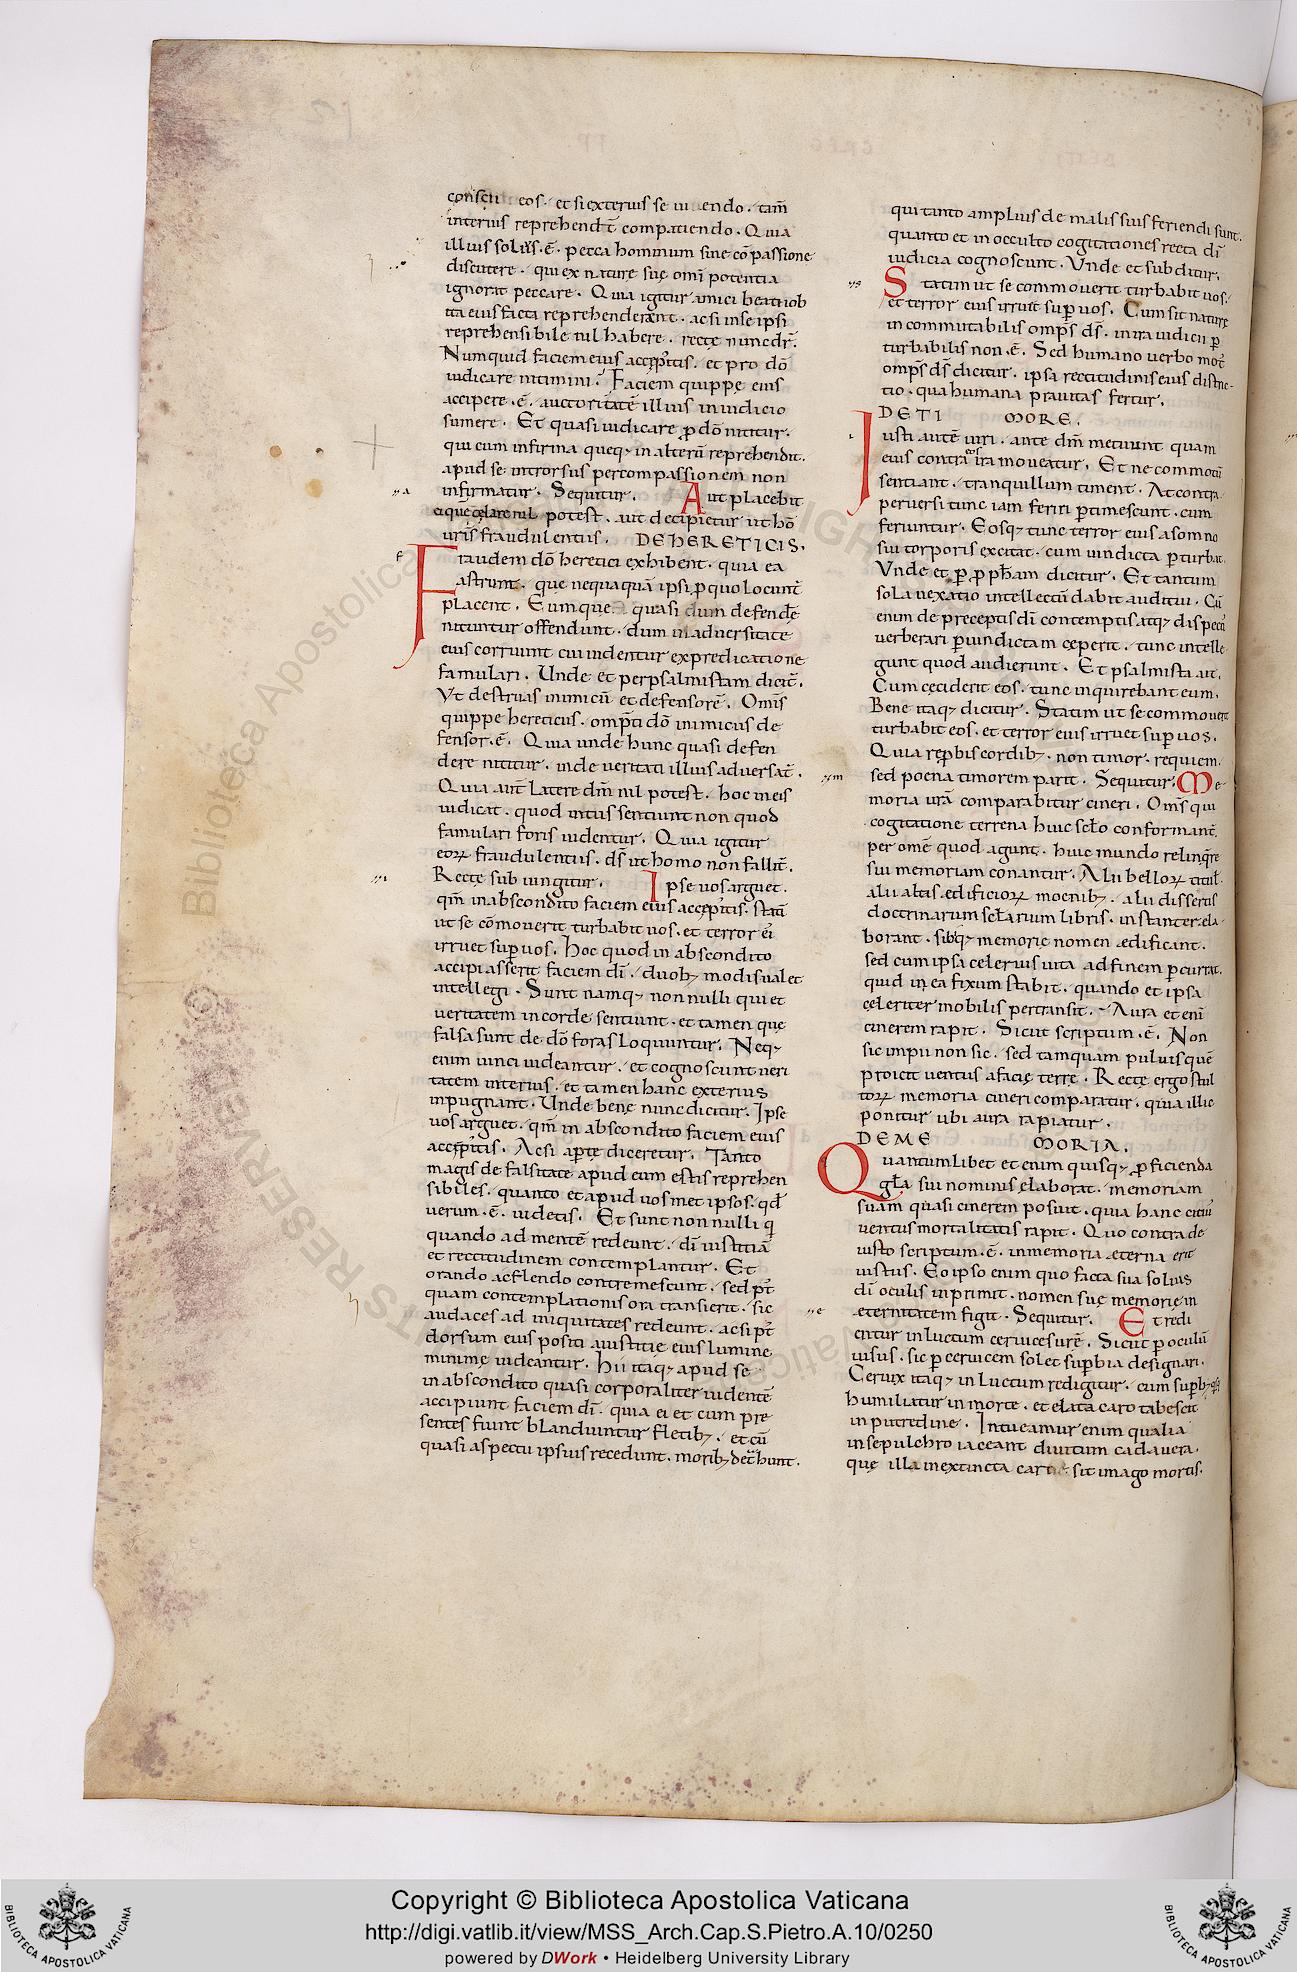 eos · et si exterius se uiuendo · tam̄
interius reprehendt̄ compatiendo · Quia
illius solius · ē · pecca hominum sine cōpassione
discutere · qui ex naturę suę omi potentia
ignorat peccare · Quia igitur amici beati iob
ita eius facta reprehenderent · ac si in se ipsi
reprehensibile nil habere · recte nunc dr̄ ·
Numquid faciem eius accęp̄tis · et pro dō
iudicare nitimini · Faciem quippę eius
accipere · ē · auctoritatē illius in iudicio
sumere · Et quasi iudicare p dō nititur ·
qui cum infirma queq; in alterū reprehendit ·
apud se introrsus per compassionem non
infirmatur · Sequitur · Aut placebit
ei quę celare nil potest · aut decipietur ut hō
uris fraudulentiis · DE HERETICIS ·
Fraudem dō heretici exhibent · quia ea
astruunt · que nequaquā ipsi p quo locunt̄
placent · Eumque · quasi dum defendę
nituntur offendunt · dum in aduersitate
eius corruunt cui uidentur ex predicatione
famulari · Unde et per psalmistam dicit̄ ·
Ut destruas inimicū et defensorē · Omīs
quippe hereticus · omp̄ti dō inimicus de
fensor · ē · Quia unde hunc quasi defen
dere nititur · inde ueritati illius aduersat̄ ·
Quia aut̄ latere dm̄ nil potest · hoc in eis
iudicat · quod intus sentiunt non quod
famulari foris uidentur · Quia igitur
eoꝝ fraudulentiis · ds̄ ut homo non fallit̄ ·
Recte sub iungitur · Ipse uos arguet ·
qm̄ in abscondito faciem eius accęp̄tis · stati
ut se cōmouerit turbabit uos · et terror ei
irruet sup uos · Hoc quod in abscondito
accipi asserit faciem dī · duob; modis ualet
intellegi · Sunt namq; non nulli qui et
ueritatem in corde sentiunt · et tamen quę
falsa sunt de dō foras loquuntur · Neq;
enim uinci uideantur · et cognoscunt ueri
tatem interius · et tamen hanc exterius
inpugnant · Unde bene nunc dicitur · Ipse
uos arguet · qm̄ in abscondito faciem eius
accęp̄tis · Ac si aptę diceretur · Tanto
magis de falsitate apud eum estis reprehen
sibiles · quanto et apud uos met ipsos · qd̄
uerum · ē · uidetis · Et sunt non nulli q
quando ad mentē redeunt · dī iustitiā
et rectitudinem contemplantur · Et
orando ac flendo contremescunt · sed pt̄
quam contemplationis ora transierit · sic
audaces ad iniquitates redeunt · ac si pt̄
dorsum eius positi a iustitię eius lumine
minime uideantur · Hii itaq; apud se
in abscondito quasi corporaliter uidentē
accipiunt faciem dī · quia ei et cum pre
sentes fiunt blandiuntur fletib; · et cū
quasi aspectu ipsius recedunt · morib; det̄hunt ·
qui tanto amplius de malis suis feriendi sunt ·
quanto et in occulto cogitationes recta dī
iudicia cognoscunt · Unde et subditur ·
Statim ut se commouerit turbabit uos ·
et terror eius irruit sup uos · Cum sit naturę
incommutabilis omp̄s ds̄ · in ira iudicii p
turbabilis non · ē · Sed humano uerbo mot̄
omp̄s ds̄ dicitur · ipsa rectitudinis eius distric
tio · qua humana prauitas fertur ·
DE TI MORE ·
Iusti autē uiri · ante dm̄ metuunt quam
eius contra ira moueatur · Et ne commotū
sentiant · tranquillum timent · At contra
peruersi tunc iam feriri ptimescunt · cum
feriuntur · Eosq; tunc terror eius a somno
sui torporis excitat · cum uindicta pturbat
Unde et p pphām dicitur · Et tantum
sola uexatio intellectū dabit auditui · Cū
enim de preceptis dī contemptis atq; dispectis
uerberari p uindictam ceperit · tunc intelle
gunt quod audierunt · Et psalmista ait ·
Cum cęciderit eos · tunc inquirebant eum ·
Bene itaq; dicitur · Statim ut se commouerit
turbabit eos · et terror eius irruet sup uos ·
Quia repbis cordib; · non timor · requiem ·
sed poena timorem parit · Sequitur · Me
moria urā comparabitur cineri · Omīs qui
cogitatione terrena huic sclo conformant̄ ·
per omē quod agunt · huic mundo relinqre
sui memoriam conantur · Alii belloꝝ titul
alii altis ędificioꝝ moenib; · alii dissertis
doctrinarum sclarium libris · instanter ela
borant · sibiq; memorię nomen ędificant ·
sed cum ipsa celerius uita ad finem pcurrat
quid in ea fixum stabit · quando et ipsa
celeriter mobilis pertransit · Aura et eni
cinerem rapit · Sicut scriptum · ē · Non
sic impii non sic · sed tamquam puluis quē
proicit uentus a facię terrę · Recte ergo stul
toꝝ memoria cineri comparatur · quia illic
ponitur ubi aura rapiatur ·
DE ME MORIA ·
Quantumlibet et enim quisq; p ficienda
gla sui nominis elaborat · memoriam
suam quasi cinerem posuit · quia hanc citiū
uentus mortalitatis rapit · Quo contra de
iusto scriptum · ē · in memoria ęterna erit
iustus · Eo ipso enim quo facta sua solius
dī oculis inprimit · nomen suę memorię in
ęternitatem figit · Sequitur · Et redi
entur in luctum ceruices urē · Sicut p oculū
uisus · sic p ceruicem solet supbia designari ·
Ceruix itaq; in luctum redigitur · cum supb;
humiliatur in morte · et elata caro tabescit
in putredine · Intueamur enim qualia
in sepulchro iaceant diuitum cadauera ·
quę illa in extincta carne sit imago mortis ·
Copyright © Biblioteca Apostolica Vaticana
http://digi.vatlib.it/view/MSS_Arch.Cap.S.Pietro.A.10/0250
powered by DWork • Heidelberg University Library